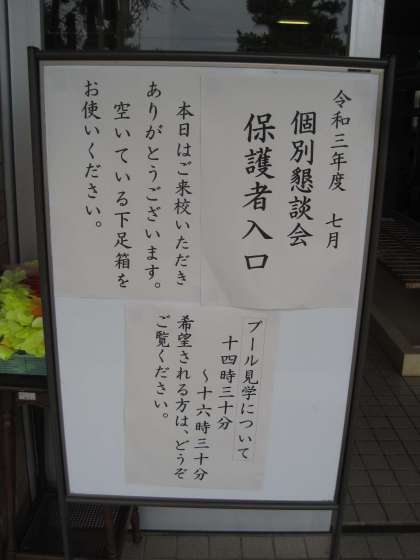 令和三年度　七月
個別懇談会
保護者入口
本日はご来校いただき
ありがとうございます。
空いている下足箱を
お使いください。
プール見学について
十四時三十分
～十六時三十分
希望される方は、どうぞ
ご覧ください。